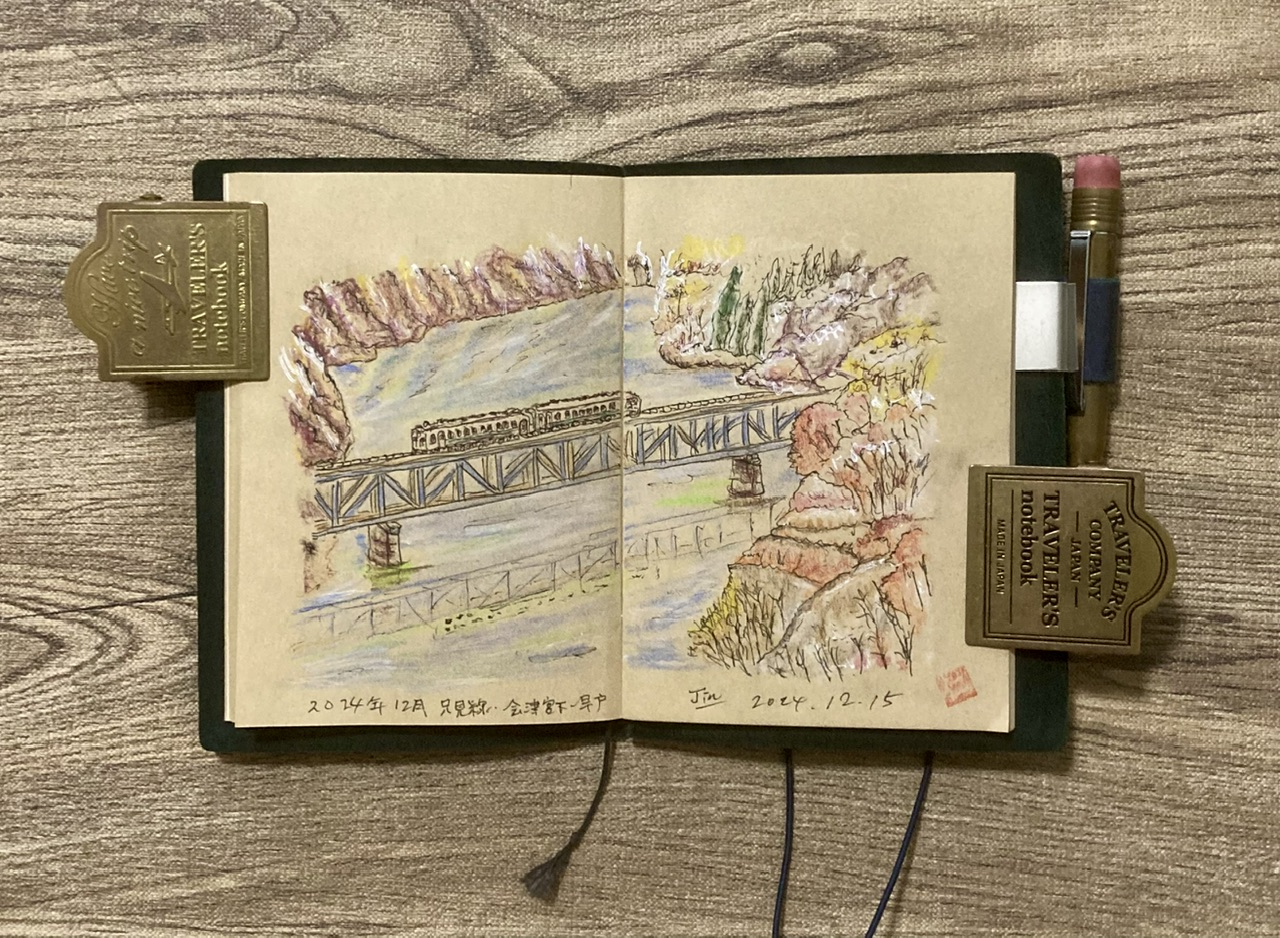 2024年12月 只見線・会津宮下〜早戸
Jin 2024.12.15
TRAVELER'S
notebook
TRAVELER'S
COMPANY
JAPAN
TRAVELER'S
notebook
MADE IN JAPAN